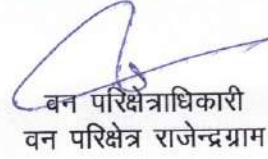 वन परिक्षेत्राधिकारी
वन परिक्षेत्र राजेन्द्रग्राम